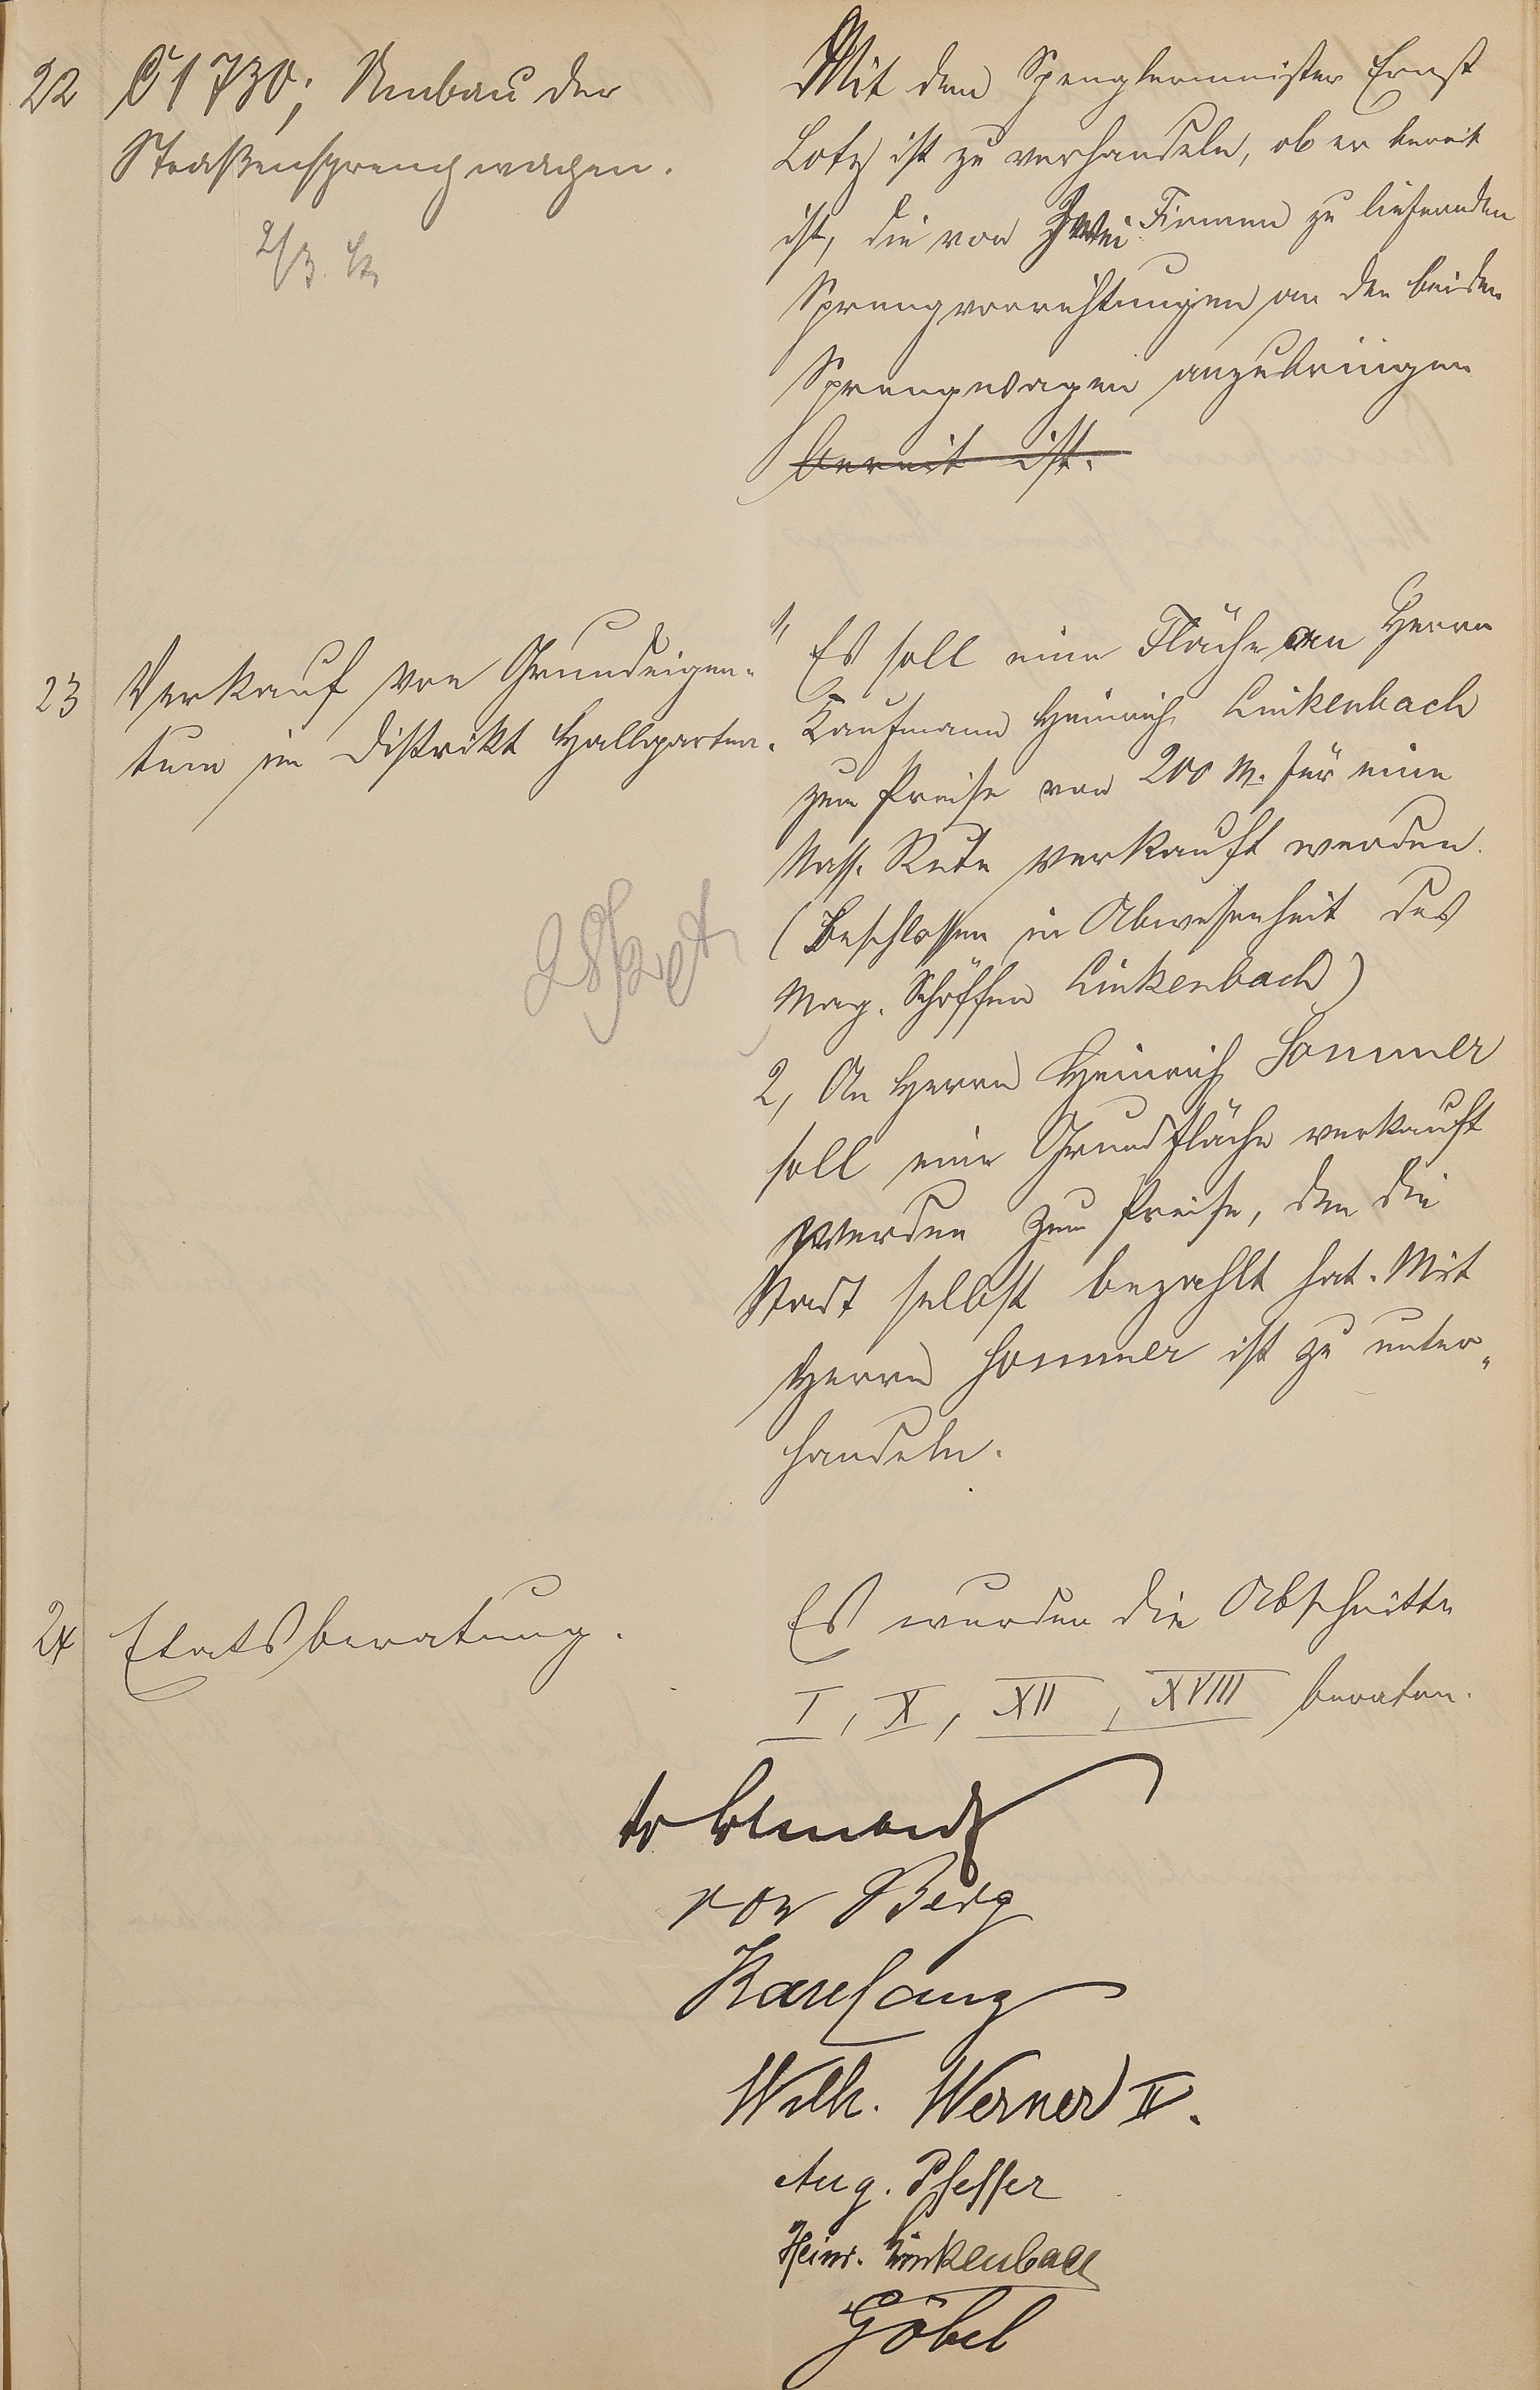 22
C 1730; Umbau der
Straßensprengwagen.
2/3.
Mit dem Spenglermeister Ernst
Lotz ist zu verhandeln, ob er bereit
ist, die von zwei Firmen zu liefernden
Sprengvorrichtungen an den beiden
Sprengwagen anzubringen
bereit ist.
23
Verkauf von Grundeigen-
tum im Distrikt Hallgarten.
1, Es soll eine Fläche an Herrn
Kaufmann Heinrich Linkenbach
zum Preise von 200 M. für eine
Nass. Rute verkauft werden.
(Beschlossen in Abwesenheit des
Mag. Schöffen Linkenbach)
2, An Herrn Heinrich Sommer
soll eine Grundfläche verkauft
werden zum Preise, den die
Stadt selbst bezahlt hat. Mit
Herrn Sommer ist zu unter-
handeln.
24
Etatsberatung.
Es wurden die Abschnitte
I, X, XII, XVIII beraten.
von Berg
Karl Lang
Wilh. Werner II.
Aug. Pfeffer
Heinr. Linkenbach
Göbel